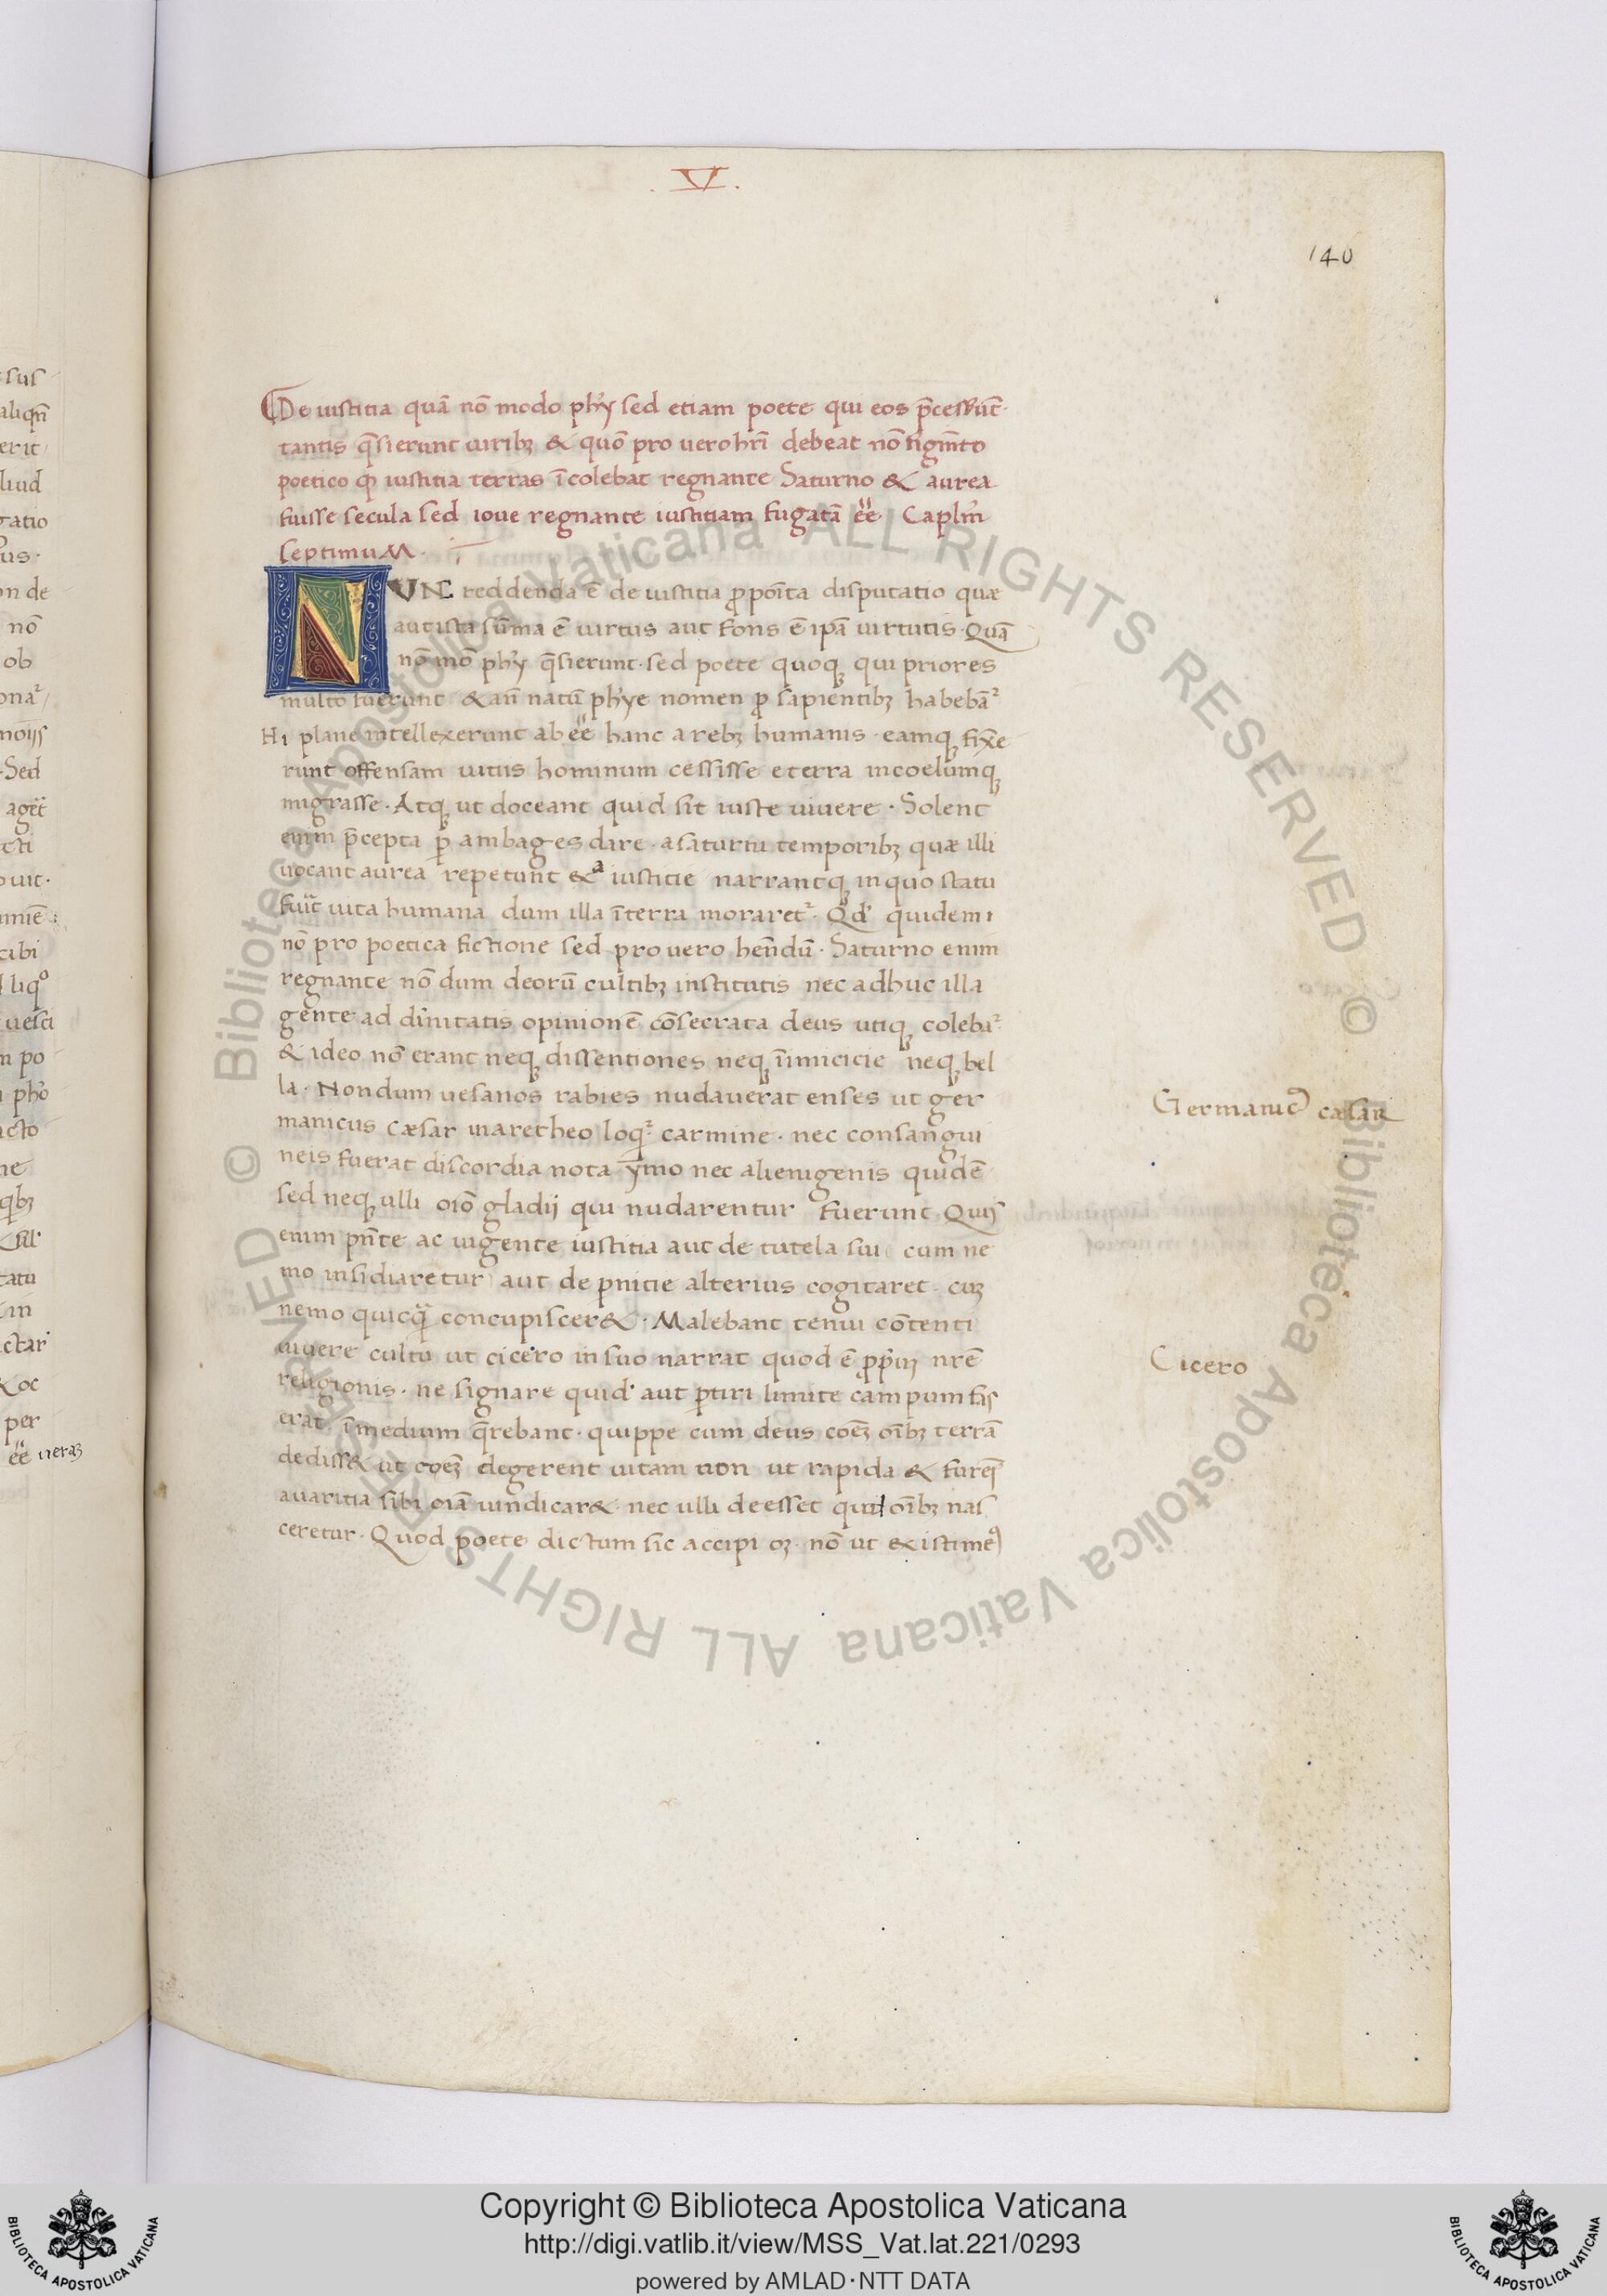 .V.
140
De iustitia quā nō modo phỹ sed etiam poete qui eos p̄cesserūt.
tantis q̄sierunt uiribꝫ & quō pro uero hr̄i debeat nō figm̄to
poetico ꝙ iustitia terras īcolebat regnante Saturno & aurea
fuisse secula sed ioue regnante iustitiam fugatā ēē Caplm̄
septimuM.
NUNC reddenda ē de iustitia ꝓpoīta disputatio quæ
aut ista sūma ē uirtus aut fons ē ipā uirtutis. Quā
nō mō phỹ q̄sierunt. sed poete quoqꝫ qui priores
multo fuerunt & an̄ natū phỹe nomen ꝓ sapientibꝫ habebāt
Hi plane intellexerunt ab ēē hanc a rebꝫ humanis. eamqꝫ fixe
runt offensam uitiis hominum cessisse e terra in coelumqꝫ
migrasse. Atqꝫ ut doceant quid sit iuste uiuere. Solent
enim p̄cepta ꝑ ambages dare. a saturni temporibꝫ quæ illi
uocant aurea repetunt &a iustitie narrantqꝫ in quo statu
fuīt uita humana dum illa ī terra moraret᷑. Qd' quidem
nō pro poetica fictione sed pro uero hēndū. Saturno enim
regnante nō dum deorū cultibꝫ institutis nec adhuc illa
gente ad diīnitatis opinionē cōsecrata deus utiqꝫ coleba᷑
& ideo nō erant neqꝫ dissentiones neqꝫ īimicicie neqꝫ bel
la. Nondum uesanos rabies nudauerat enses ut ger
manicus Cæsar in aretheo loqᷓ᷑ carmine. nec consangui
neis fuerat discordia nota ymo nec alienigenis quidē
sed neqꝫ ulli oīo gladij qui nudarentur fuerunt. Quis
enim pn̄te ac uigente iustitia aut de tutela sui cum ne
mo insidiaretur aut de ꝑnitie alterius cogitaret. cuꝫ
nemo quicqᷓ concupiscer&. Malebant tenui cōtenti
uiuere cultu ut cicero in suo narrat quod ē ꝓp̄iuꝫ nr̄e
religionis. ne signare quid' aut ꝑtiri limite campum fas
erat. ī medium q̄rebant. quippe cum deus coēꝫ oībꝫ terrā
dediss& ut coēꝫ degerent uitam non ut rapida & furēs
auaritia sibi oīa uindicar& nec ulli deesset quod oībꝫ nas
ceretur. Quod poete dictum sic accipi oꝫ. nō ut existimēꝰ
Germanicꝰ cæsar
Cicero
Copyright © Biblioteca Apostolica Vaticana
http://digi.vatlib.it/view/MSS_Vat.lat.221/0293
powered by AMLAD·NTT DATA